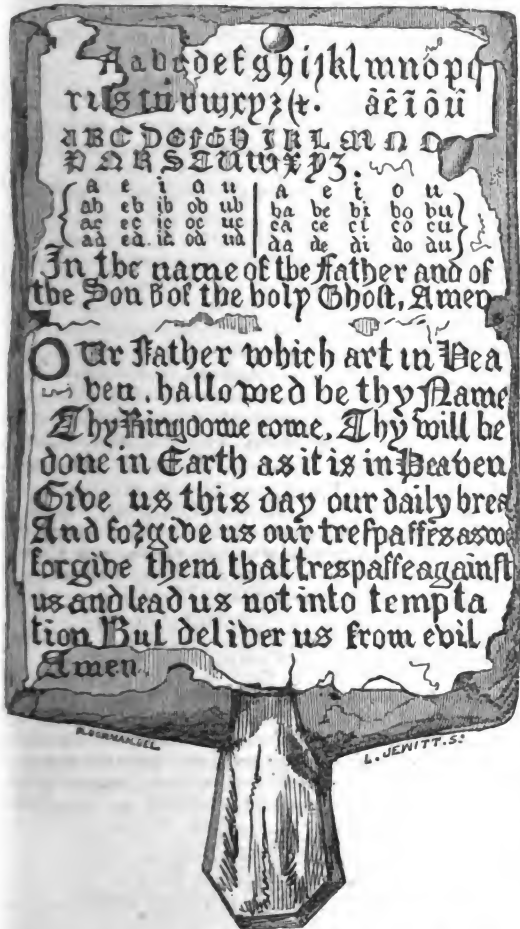 Aabcdefghijklmnopq
rſstuvwxyz&. āēīōū
ABCDEFGHIKLMNO
PQRSTUWXYZ.
a e i o u a e i o u
ab eb ib ob ub ba be bi bo bu
ac ec ic oc uc ca ce ci co cu
ad ed id od ud da de di do du
In the name of the Father and of
the Son & of the holy Ghoſt, Amen
Our Father which art in Hea
ven, hallowed be thy Name
Thy Kingdome come, Thy will be
done in Earth as it is in Heaven
Give us this day our daily brea
And forgive us our treſpaſſes as we
forgive them that treſpaſſe againſt
us and lead us not into tempta
tion But deliver us from evil
Amen.
L. JEWITT. Sc.